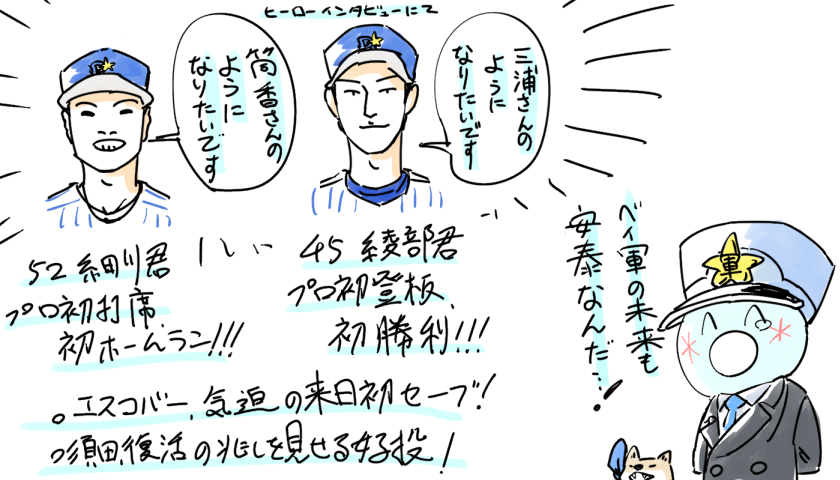 ヒーローインタビューにて
三浦さんの
ように
なりたいです
筒香さんの
ように
なりたいです
45 綾部君
プロ初登板、
初勝利!!!
52 細川君
プロ初打席、
初ホームラン!!!
ベイ軍の未来も
安泰なんだ…!
軍
。エスコバー、気迫の来日初セーブ!
須田、復活の兆しを見せる好投!